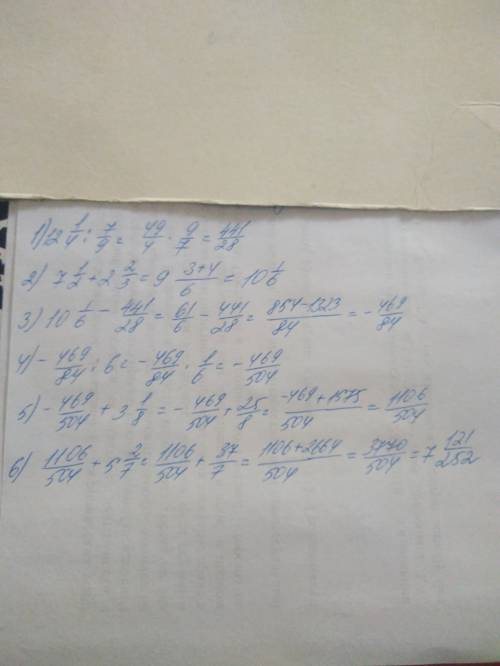 1) 12 1/4 : 7/9 = 49/4 · 9/7 = 441/28
2) 7 1/2 + 2 2/3 = 9 3+4/6 = 10 1/6
3) 10 1/6 - 441/28 = 61/6 - 441/28 = 854-1323/84 = - 469/84
4) - 469/84 : 6 = - 469/84 · 1/6 = - 469/504
5) - 469/504 + 3 1/8 = - 469/504 + 25/8 = -469+1575/504 = 1106/504
6) 1106/504 + 5 2/7 = 1106/504 + 37/7 = 1106+2664/504 = 3770/504 = 7 121/252